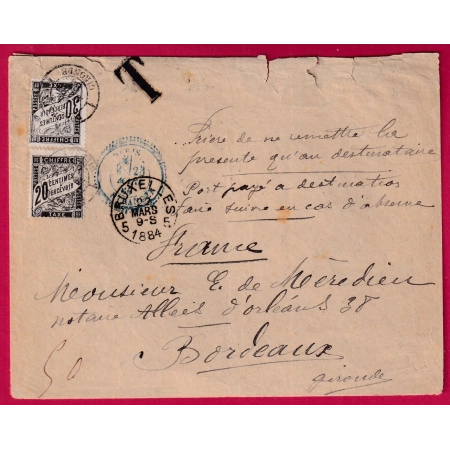 T
CHIFFRE
30
CENTIMES
À PERCEVOIR
TAXE
CHIFFRE
20
CENTIMES
À PERCEVOIR
TAXE
BRUXELLES
22
MARS
9-S
1884
5 5
Prière de ne remettre la
présente qu'au destinataire
Port payé a destination
faire suivre en cas d'absence
France
Monsieur E. de Mèredieu
notaire Allées d'orléans 38
Bordeaux
Gironde
50